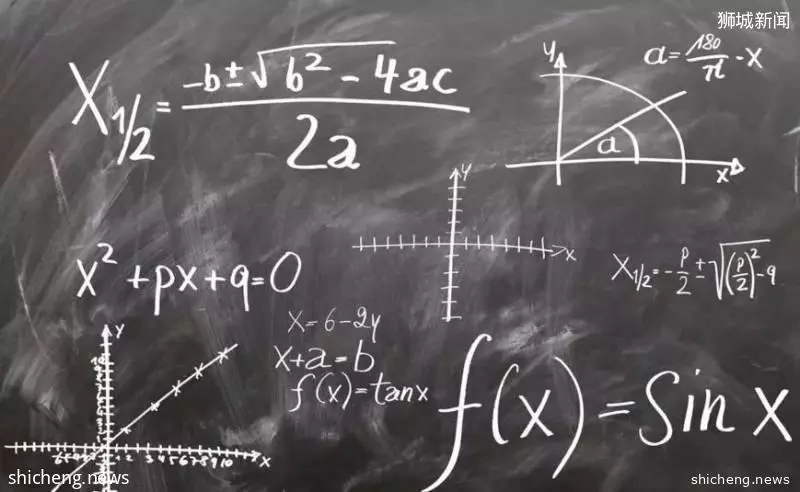 狮城新闻
X₁/₂ = (-b ± √(b² - 4ac)) / 2a
y
a = 180/π · x
a
x
y
x
x² + px + q = 0
X₁/₂ = -p/2 ± √((p/2)² - q)
x = 6 - 2y
x + a = b
f(x) = tan x
f(x) = Sin x
y
x
shicheng.news
shicheng.news